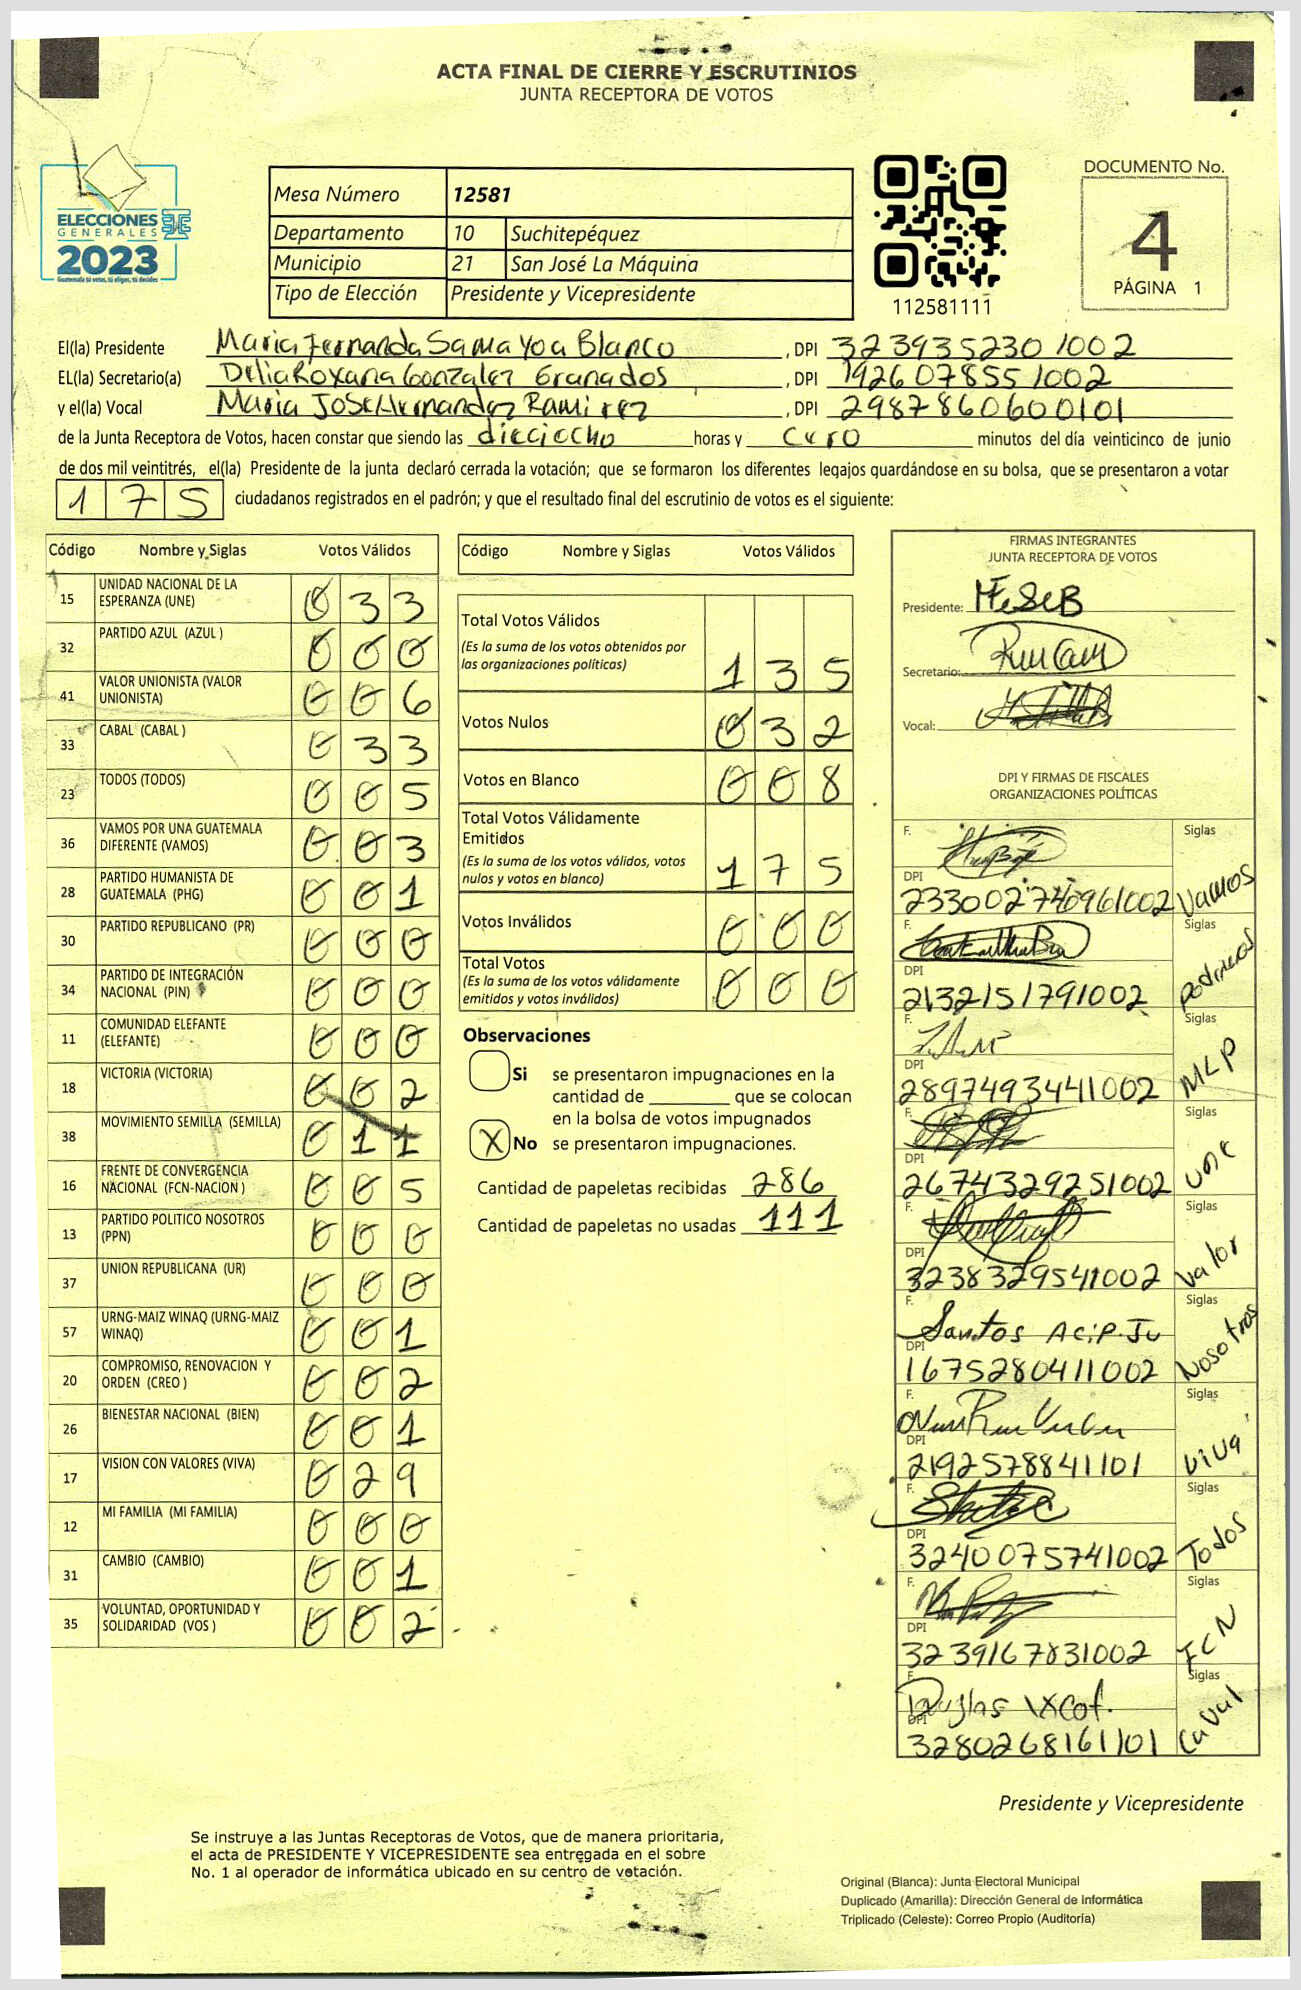 ACTA FINAL DE CIERRE Y ESCRUTINIOS
JUNTA RECEPTORA DE VOTOS
ELECCIONES
GENERALES
2023
Guatemala tú votas, tú eliges, tú decides
Mesa Número 12581
Departamento 10 Suchitepéquez
Municipio 21 San José La Máquina
Tipo de Elección Presidente y Vicepresidente
112581111
DOCUMENTO No.
4
PÁGINA 1
El(la) Presidente Maria Fernanda Samayoa Blanco, DPI 3239352301002
EL(la) Secretario(a) Delia Roxana Gonzalez Granados, DPI 1926078551002
y el(la) Vocal Maria José Hernandez Ramirez, DPI 2987860600101
de la Junta Receptora de Votos, hacen constar que siendo las dieciocho horas y cero minutos del día veinticinco de junio
de dos mil veintitrés, el(la) Presidente de la junta declaró cerrada la votación; que se formaron los diferentes legajos quardándose en su bolsa, que se presentaron a votar
175 ciudadanos registrados en el padrón; y que el resultado final del escrutinio de votos es el siguiente:
Código Nombre y Siglas Votos Válidos
15 UNIDAD NACIONAL DE LA ESPERANZA (UNE) 033
32 PARTIDO AZUL (AZUL ) 000
41 VALOR UNIONISTA (VALOR UNIONISTA) 006
33 CABAL (CABAL ) 033
23 TODOS (TODOS) 005
36 VAMOS POR UNA GUATEMALA DIFERENTE (VAMOS) 003
28 PARTIDO HUMANISTA DE GUATEMALA (PHG) 001
30 PARTIDO REPUBLICANO (PR) 000
34 PARTIDO DE INTEGRACIÓN NACIONAL (PIN) 000
11 COMUNIDAD ELEFANTE (ELEFANTE) 000
18 VICTORIA (VICTORIA) 002
38 MOVIMIENTO SEMILLA (SEMILLA) 011
16 FRENTE DE CONVERGENCIA NACIONAL (FCN-NACION ) 005
13 PARTIDO POLITICO NOSOTROS (PPN) 000
37 UNION REPUBLICANA (UR) 000
57 URNG-MAIZ WINAQ (URNG-MAIZ WINAQ) 001
20 COMPROMISO, RENOVACION Y ORDEN (CREO ) 002
26 BIENESTAR NACIONAL (BIEN) 001
17 VISION CON VALORES (VIVA) 029
12 MI FAMILIA (MI FAMILIA) 000
31 CAMBIO (CAMBIO) 001
35 VOLUNTAD, OPORTUNIDAD Y SOLIDARIDAD (VOS ) 002
Código Nombre y Siglas Votos Válidos
Total Votos Válidos
(Es la suma de los votos obtenidos por las organizaciones políticas) 135
Votos Nulos 032
Votos en Blanco 008
Total Votos Válidamente Emitidos
(Es la suma de los votos válidos, votos nulos y votos en blanco) 175
Votos Inválidos 000
Total Votos
(Es la suma de los votos válidamente emitidos y votos inválidos) 000
Observaciones
Si se presentaron impugnaciones en la
cantidad de que se colocan
en la bolsa de votos impugnados
X No se presentaron impugnaciones.
Cantidad de papeletas recibidas 286
Cantidad de papeletas no usadas 111
FIRMAS INTEGRANTES
JUNTA RECEPTORA DE VOTOS
Presidente:
Secretario:
Vocal:
DPI Y FIRMAS DE FISCALES
ORGANIZACIONES POLÍTICAS
F. Siglas
DPI
2330027460961002 Vamos
F. Siglas
DPI
2132151791002
F. Siglas
DPI
2897493441002 MLP
F. Siglas
DPI
2674329251002 une
F. Siglas
DPI
3238329541002 Valor
F. Siglas
Santos
DPI
1675280411002 Nosotros
F. Siglas
DPI
2192578841101 viva
F. Siglas
DPI
3240075741002 Todos
F. Siglas
DPI
3239167831002 FCN
F. Siglas
Douglas Ixcot.
DPI
3280268161101 Caval
Presidente y Vicepresidente
Se instruye a las Juntas Receptoras de Votos, que de manera prioritaria,
el acta de PRESIDENTE Y VICEPRESIDENTE sea entregada en el sobre
No. 1 al operador de informática ubicado en su centro de votación.
Original (Blanca): Junta Electoral Municipal
Duplicado (Amarilla): Dirección General de Informática
Triplicado (Celeste): Correo Propio (Auditoría)